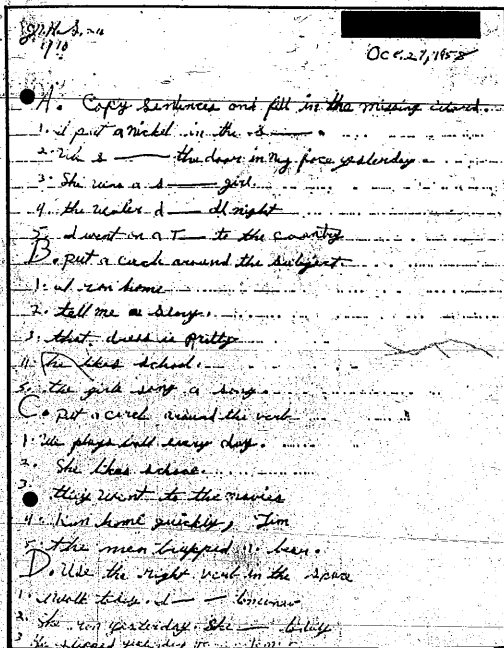 Oct. 27, 1958
A. Copy sentences and fill in the missing word.
1. I put a nickel in the s——.
2. He s—— the door in my face yesterday.
3. She was a s—— girl.
4. the water d—— all night
5. I went on a T—— to the country
B. put a circle around the subject.
1. I ran home
2. tell me a story.
3. that dress is pretty
4. he likes school.
5. the girls sang a song
C. put a circle around the verb
1. We plays ball every day.
2. She likes school.
3. they went to the movies
4. Run home quickly, Jim
5. the men trapped a bear.
D. Use the right verb in the space
1. I walk today. I —— tomorrow
2. She ran yesterday. She —— today
3. He slipped yesterday